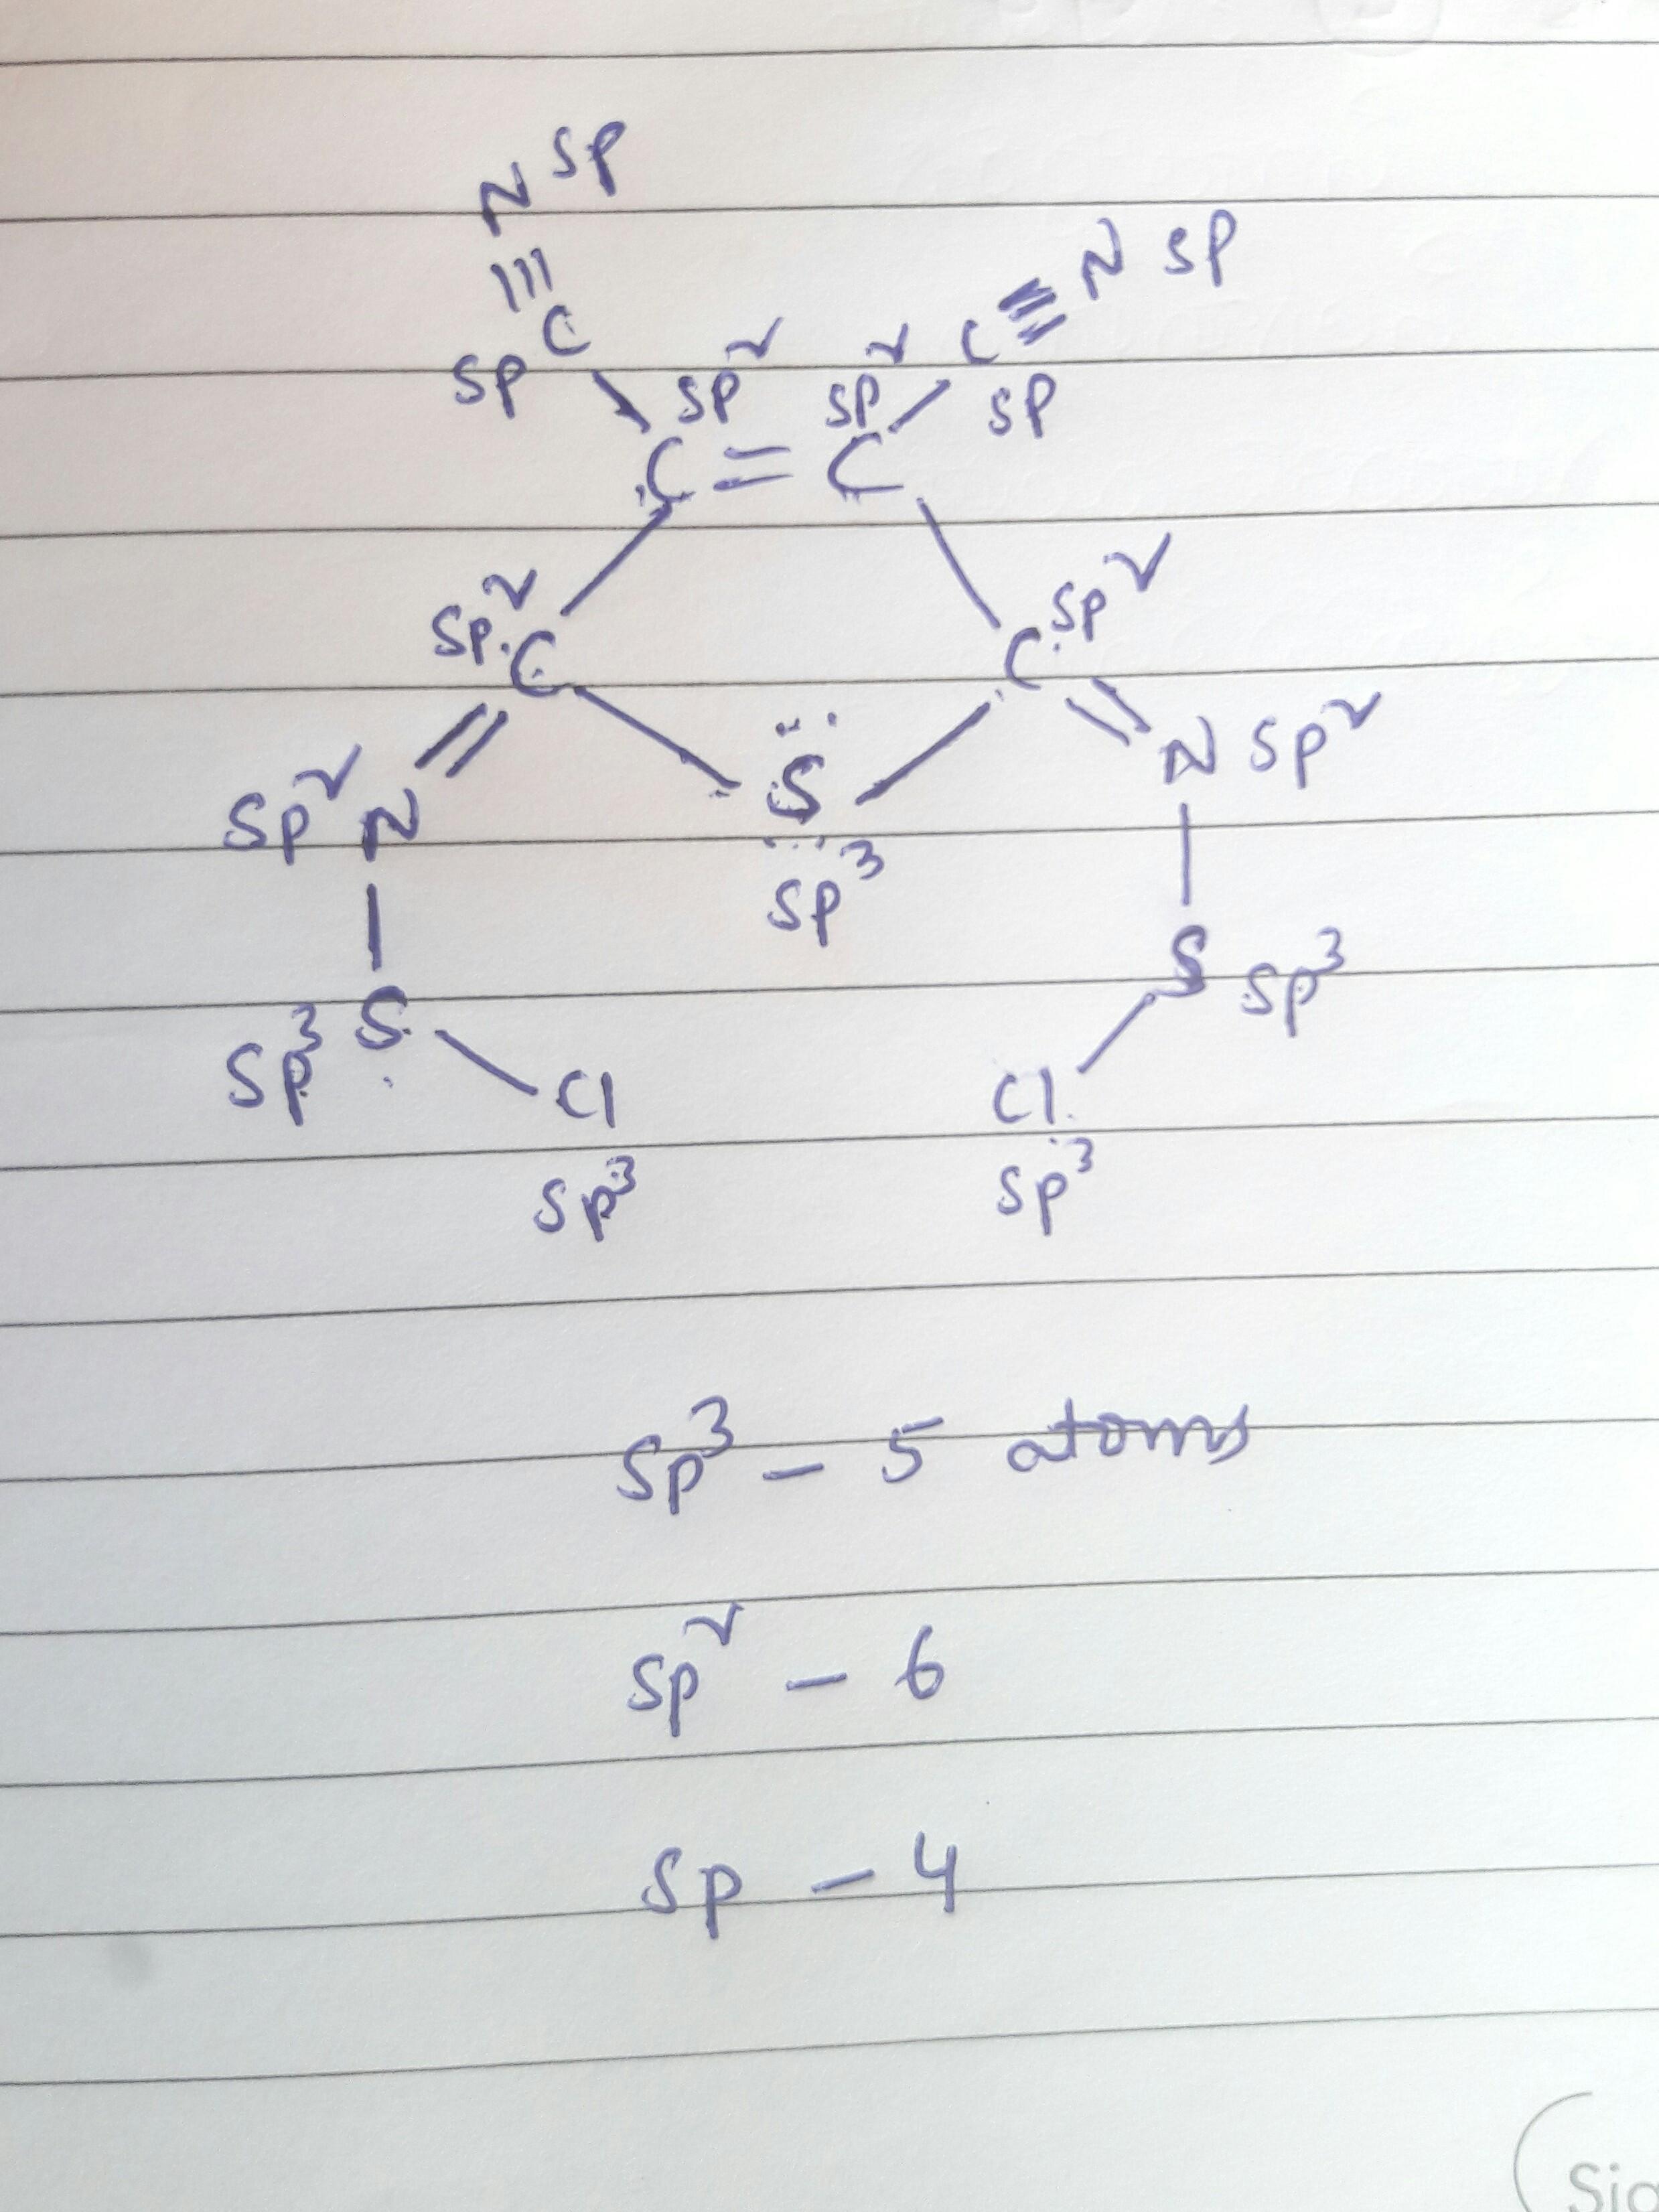 N sp
≡ N sp
C C
sp sp² sp² sp
C = C
sp² C C sp²
sp² N S N sp²
sp³
S S sp³
sp³ Cl Cl
sp³ sp³
sp³ – 5 atoms
sp² – 6
sp – 4